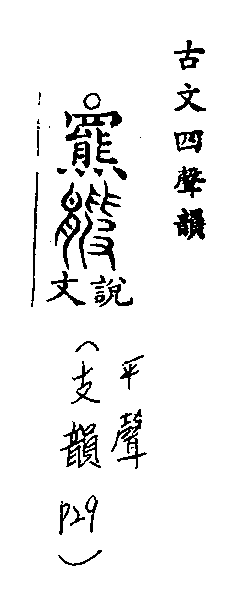 古文四聲韻
羆
說文
平聲
（支韻 P29）